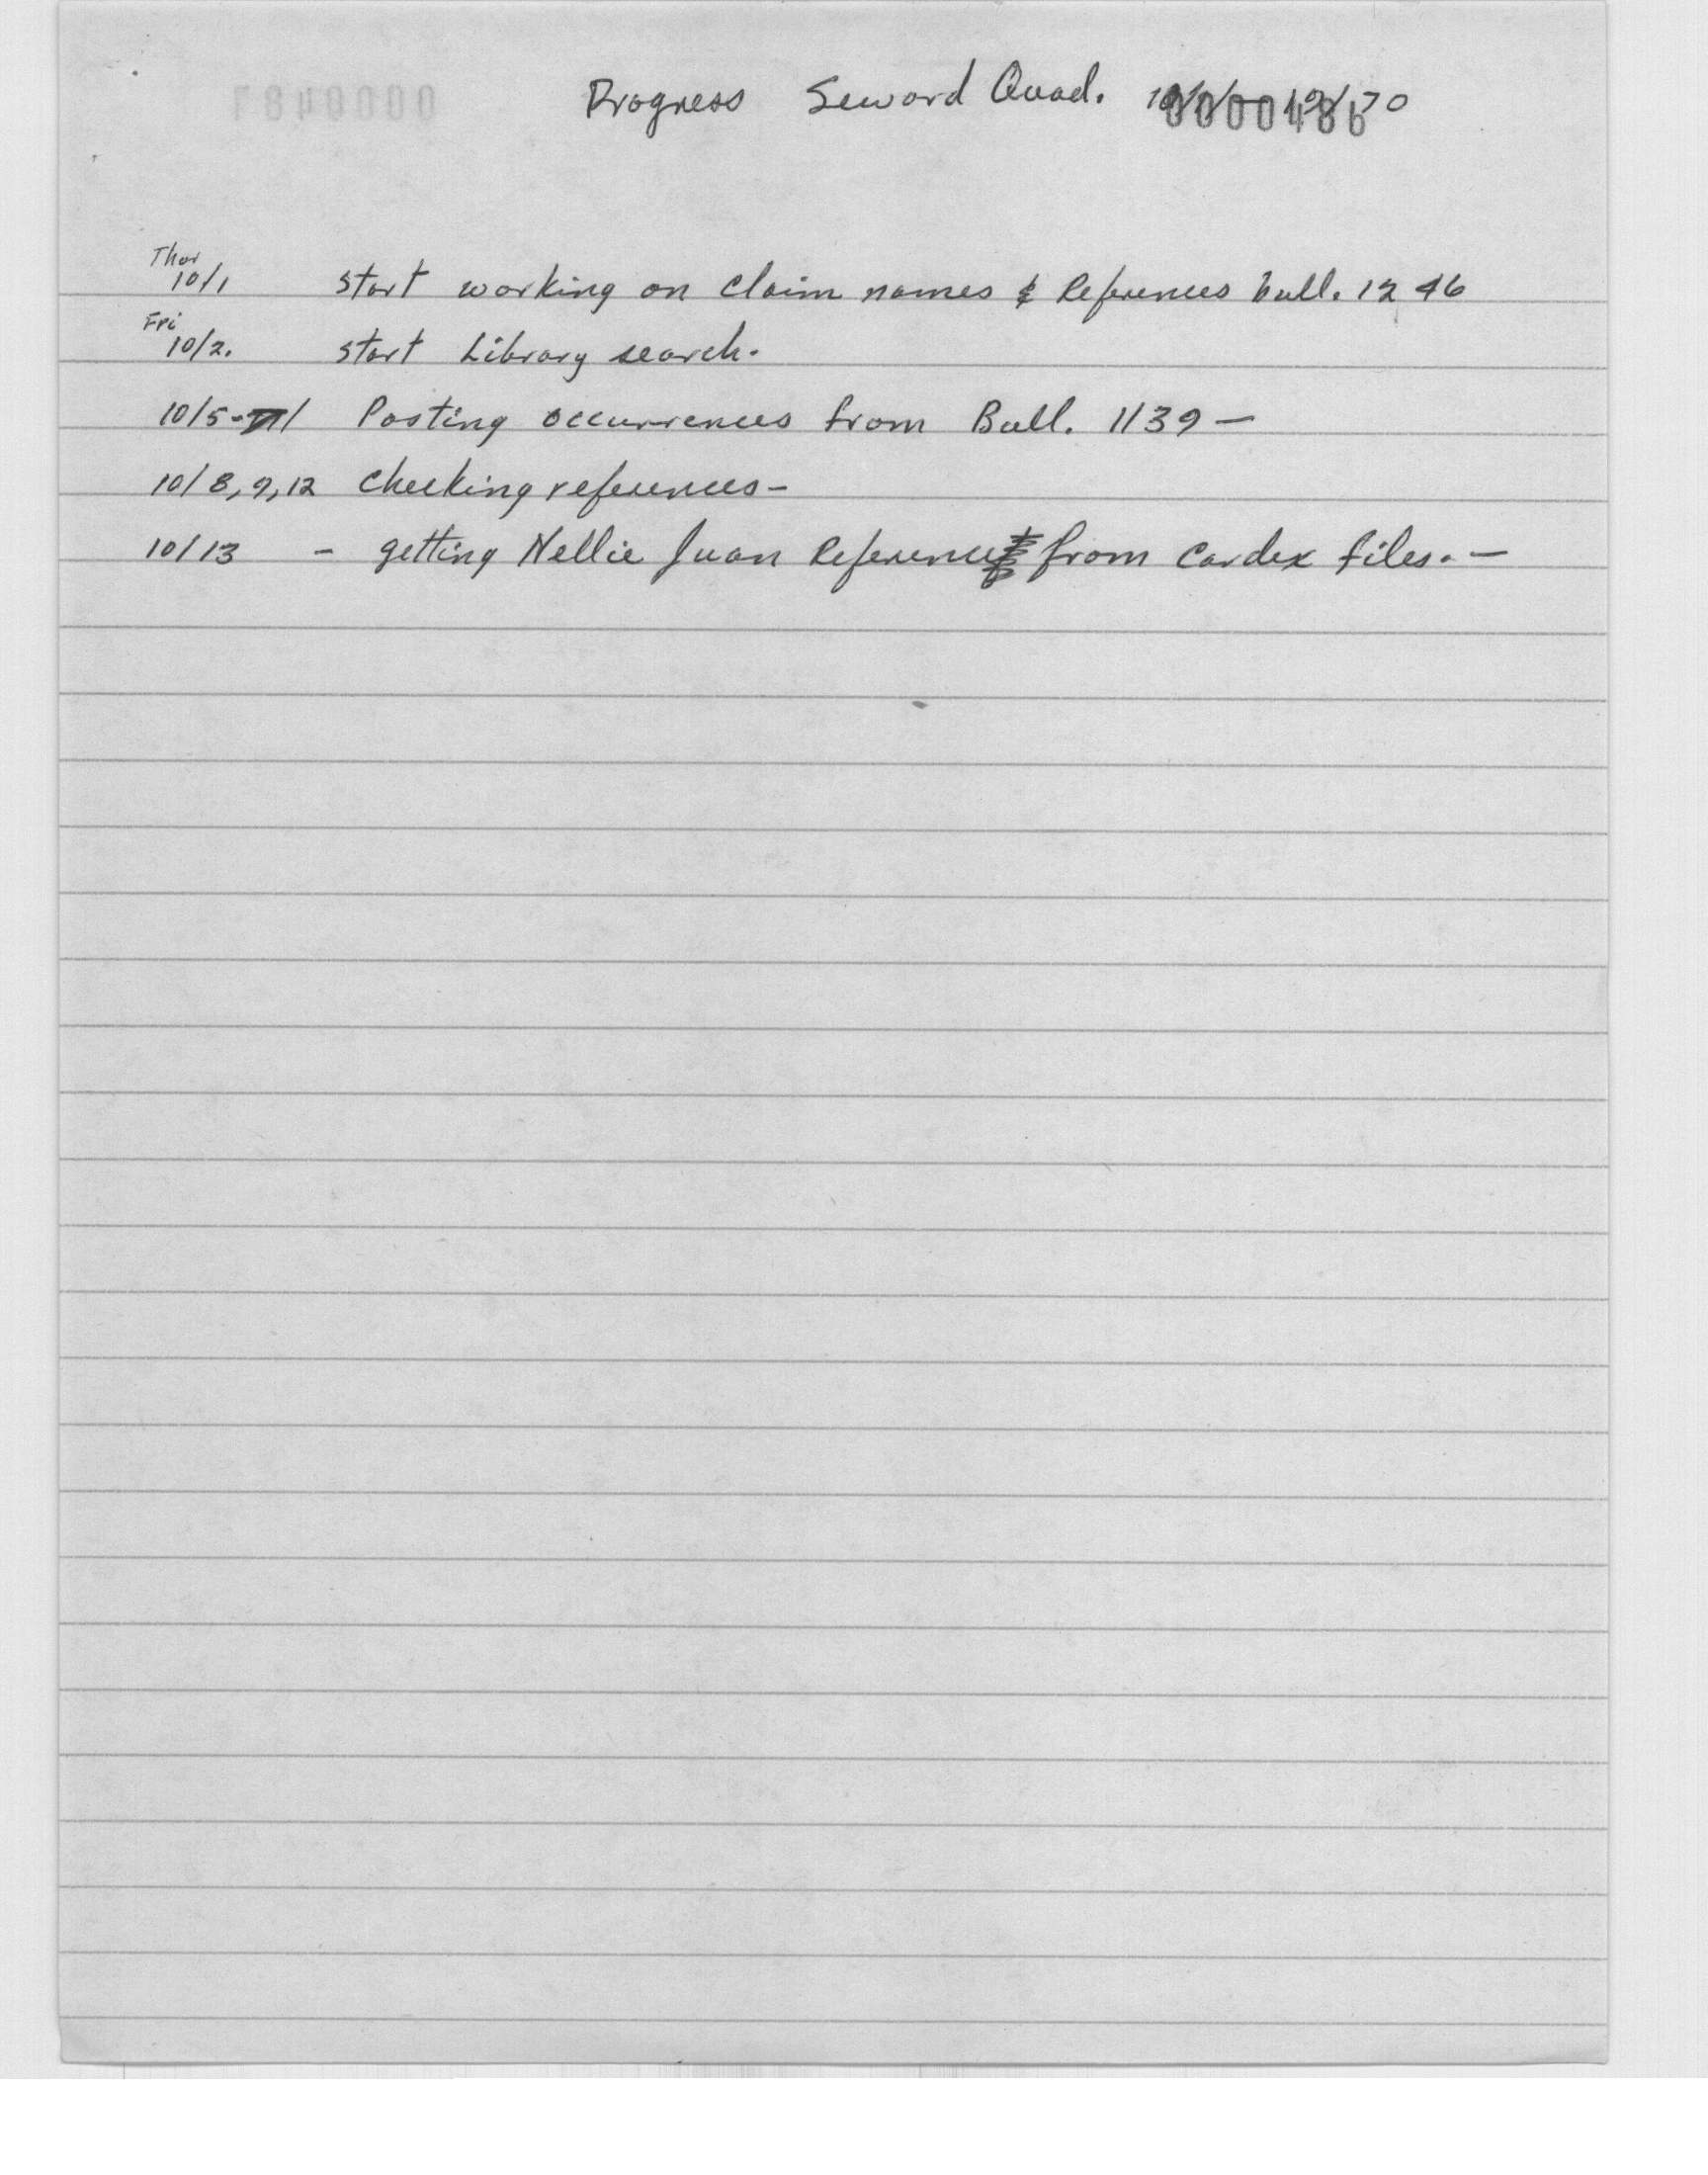 Progress Seward Quad. 10/1/ 70
0000486
Thur
10/1 Start working on Claim names & References bull. 1246
Fri
10/2. Start Library search.
10/5- Posting occurrences from Bull. 1139 —
10/8, 9, 12 Checking references -
10/13 - getting Nellie Juan References from Cardex files. —